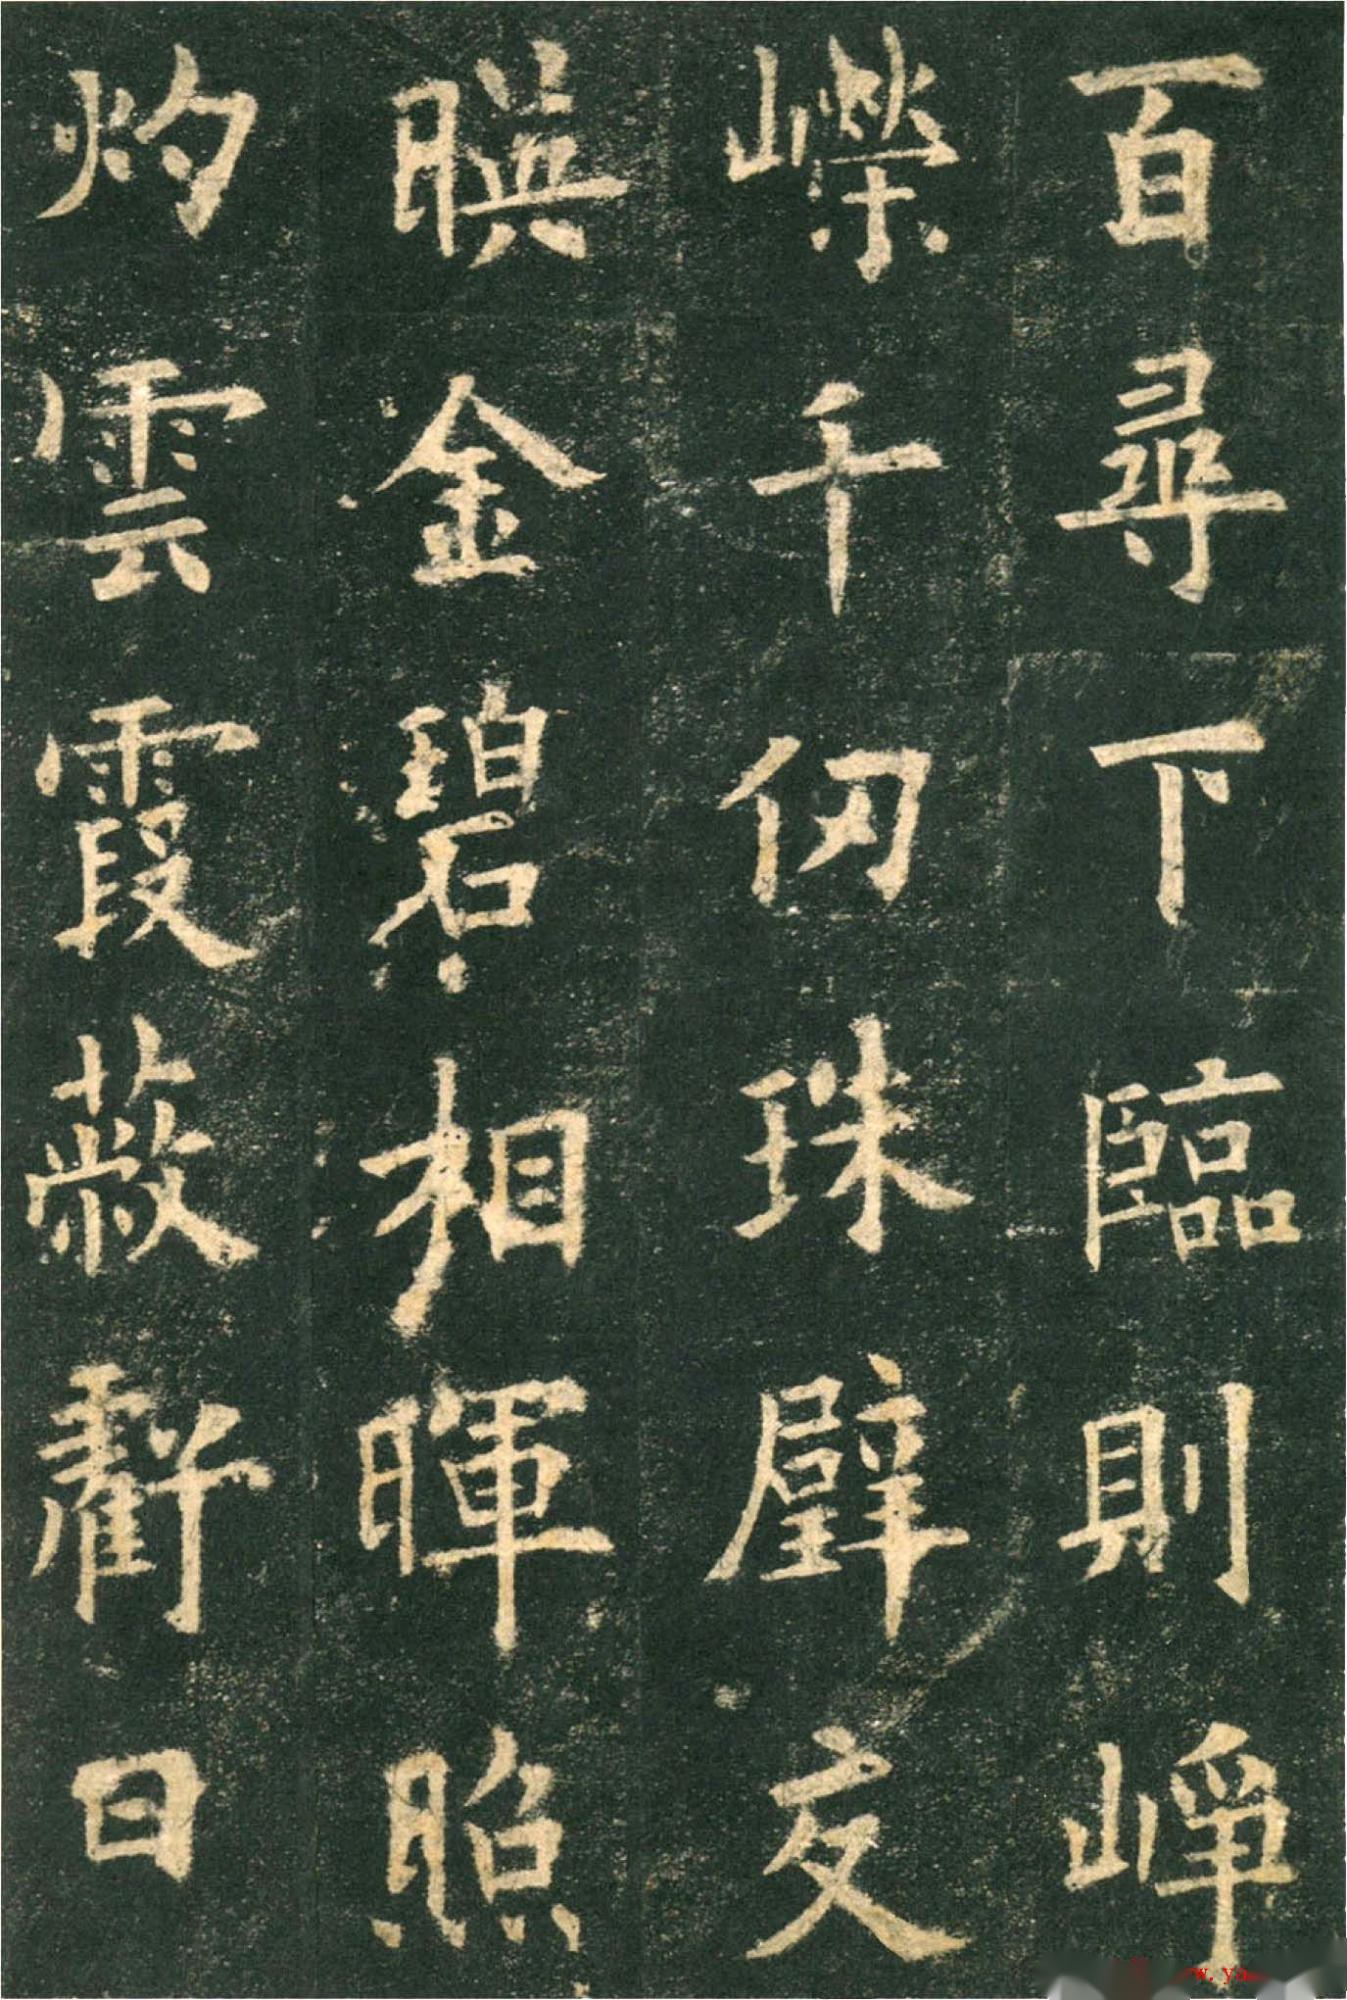 百尋下臨則崢
嶸千仞珠璧交
暎金碧相暉照
灼雲霞蔽虧日
w.ya